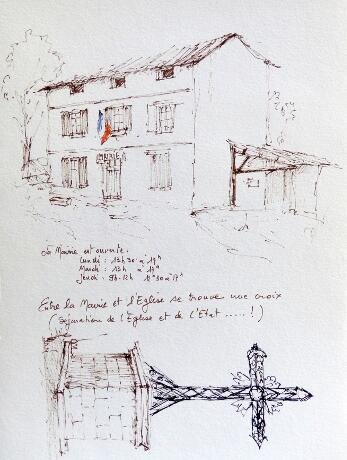 MAIRIE
La Mairie est ouverte.
Lundi : 13h30 à 17h
Mardi : 13h à 17h
Jeudi : 9h-12h 13h30 à 17h
Entre la Mairie et l'Eglise se trouve une croix
(Séparation de l'Eglise et de l'Etat ..... !)